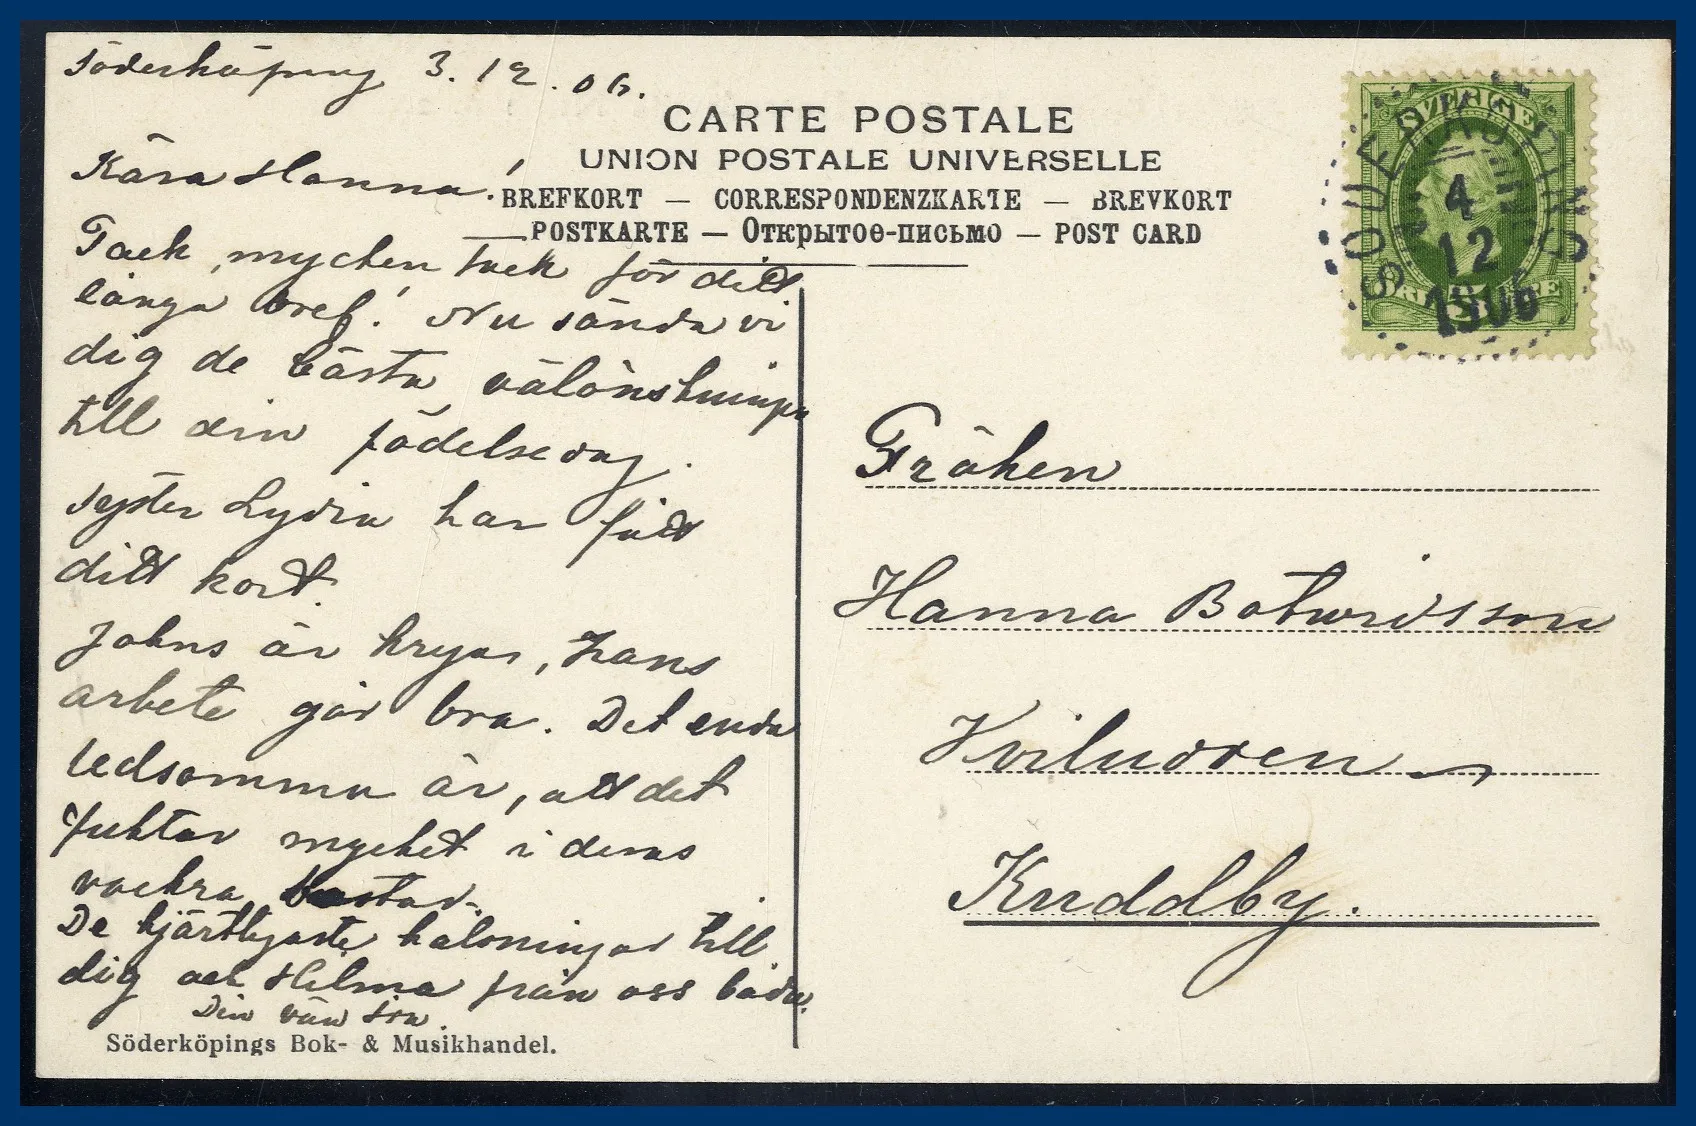 Söderköping 3.12.06.
Kära Hanna!
Tack, mycken tack för ditt
långa bref! Nu sända vi
dig de bästa välönskningar
till din födelsedag.
Syster Lydia har fått
ditt kort.
Johns är kryar, hans
arbete går bra. Det enda
ledsamma är, att det
fuktar mycket i deras
vackra bostad.
De hjärtligaste hälsningar till
dig och Hilma från oss båda.
Din vän
Söderköpings Bok- & Musikhandel.
CARTE POSTALE
UNION POSTALE UNIVERSELLE
BREFKORT — CORRESPONDENZKARTE — BREVKORT
POSTKARTE — Открытоѳ-письмо — POST CARD
SVERIGE
SÖDERKÖPING
4
12
1906
Fröken
Hanna Botwidsson
Hviludden
Kuddby.